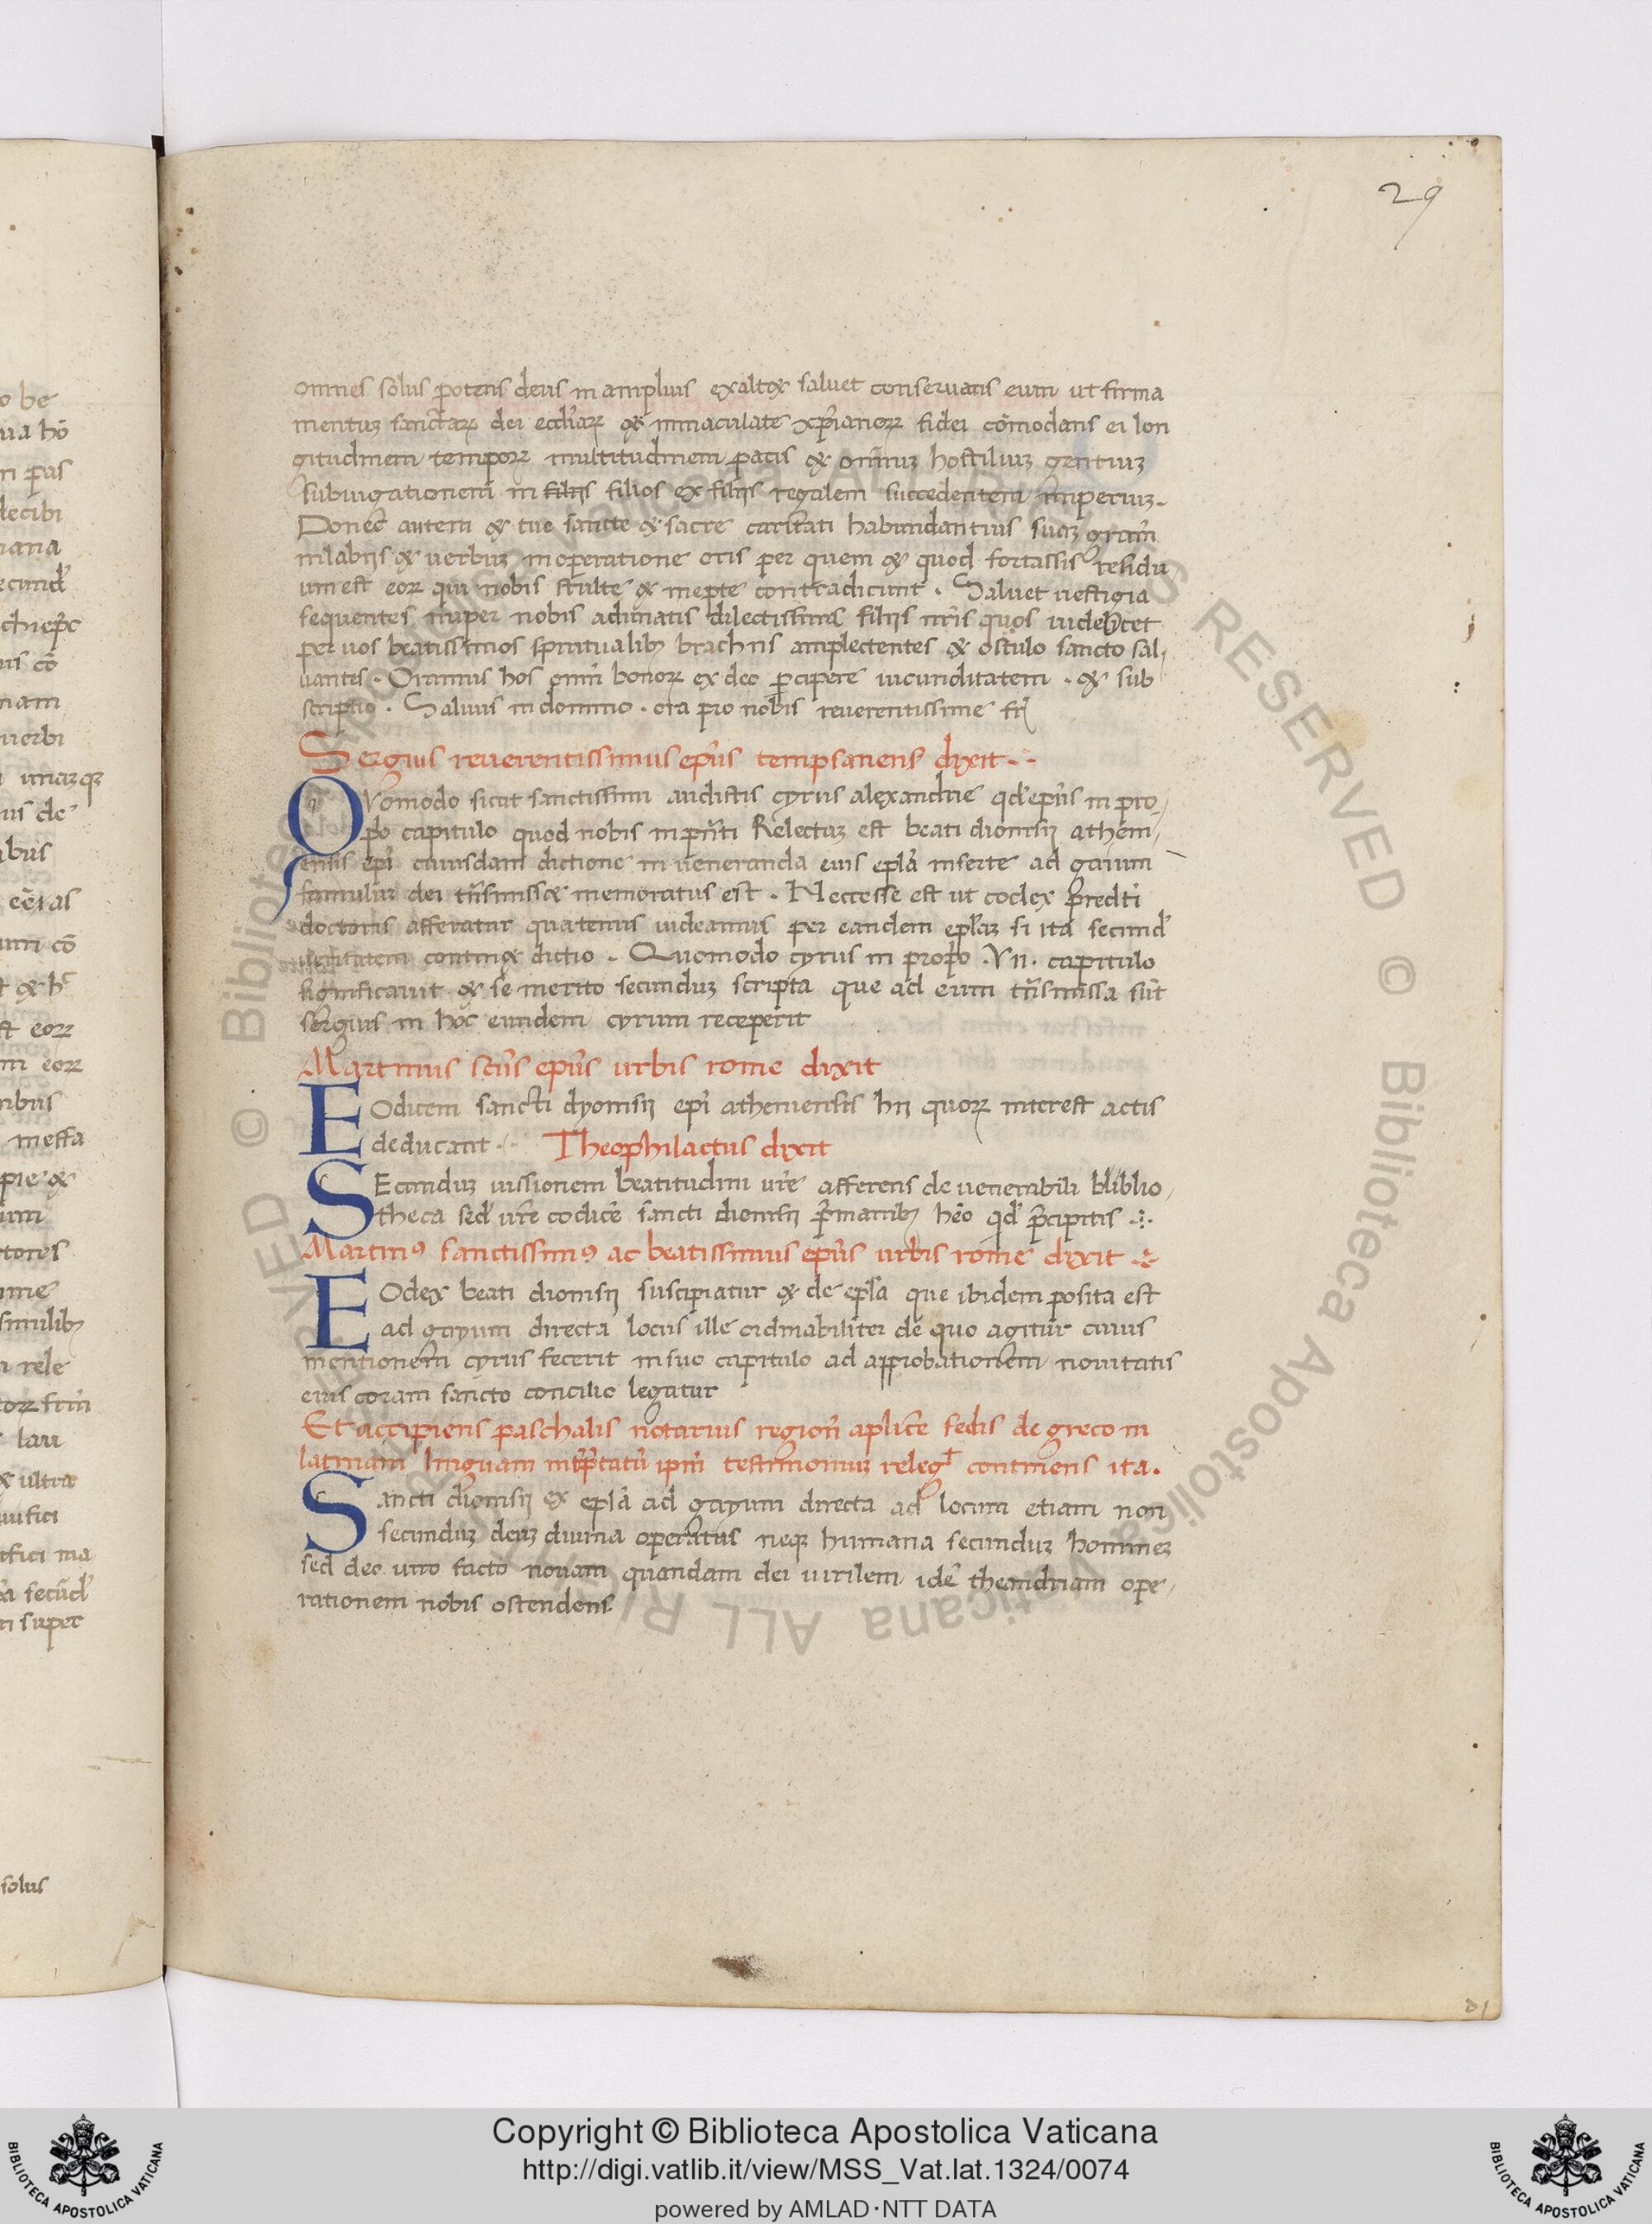 29
omnes solus potens deus in amplius exaltet saluet conseruans eum ut firma
mentuz sanctarum dei eccliarum et immaculate xpianorum fidei cōmodans ei lon
gitudinem temporum multitudinem pacis et omniuz hostiliuz gentiuz
subiugationem in filiis filios ex filiis regalem succedentem imperiuz.
Donec autem et tue sancte et sacre caritati habundantius suaz gram
in labiis et uerbuz in operatione oris per quem et quod fortassis residu
um est eorum qui nobis stulte et inepte contradicunt. Saluet uestigia
sequentes nuper nobis adunatis dilectissimi filiis nris quos uidelicet
per uos beatissimos spiritualibus brachiis amplectentes et osculo sancto sal
uantes. Oramus hos omni bonorum ex deo percipere iucunditatem. et sub
scriptio. Saluus in domino. ora pro nobis reuerentissime fr
Sergius reuerentissimus epus tempsanens dixit
QVomodo sicut sanctissimi audistis cyrus alexandrie qd epus in pro
po capitulo quod nobis in pnti Relectuz est beati dionisii athen
ensis epi cuiusdam dictione in ueneranda eius epla inserte ad gaium
famulum dei memoratus est. Neccesse est ut codex predti
doctoris afferatur quatenus uideamus per eandem eplaz si ita secund
ueritatem continet dictio. Quomodo cyrus in propo .VII. capitulo
significauit et se merito secunduz scripta que ad eum tnsmissa sūt
sergius in hoc eundem cyrum receperit
Martinus scus epus urbis rome dixit
EOdicem sancti dyonisii epi atheniensis hii quorum interest actis
deducant. Theophilactus dixit
SEcunduz iussionem beatitudini ure afferens de uenerabili bliblio
theca sed ure codice sancti dionisii pre manibus heo qd precipitis
Martinus sanctissimus ac beatissimus epus urbis rome dixit
EOdex beati dionisii suscipiatur et de epla que ibidem posita est
ad gayum directa locus ille de quo agitur cuius
mentionem cyrus fecerit in suo capitulo ad approbationem nouitatis
eius coram sancto concilio legatur
Et accipiens paschalis notarius region aplice sedis de greco in
latinam linguam intptatū ipm testimoniuz releg continens ita.
Sancti dionisii ex epla ad gayum directa ad locum etiam non
secunduz deuz diuina operatus neqz humana secunduz hominez
sed deo uiro facto nouam quandam dei uirilem ide theandriam ope
rationem nobis ostendens
Copyright © Biblioteca Apostolica Vaticana
http://digi.vatlib.it/view/MSS_Vat.lat.1324/0074
powered by AMLAD·NTT DATA
BIBLIOTECA APOSTOLICA VATICANA
BIBLIOTECA APOSTOLICA VATICANA